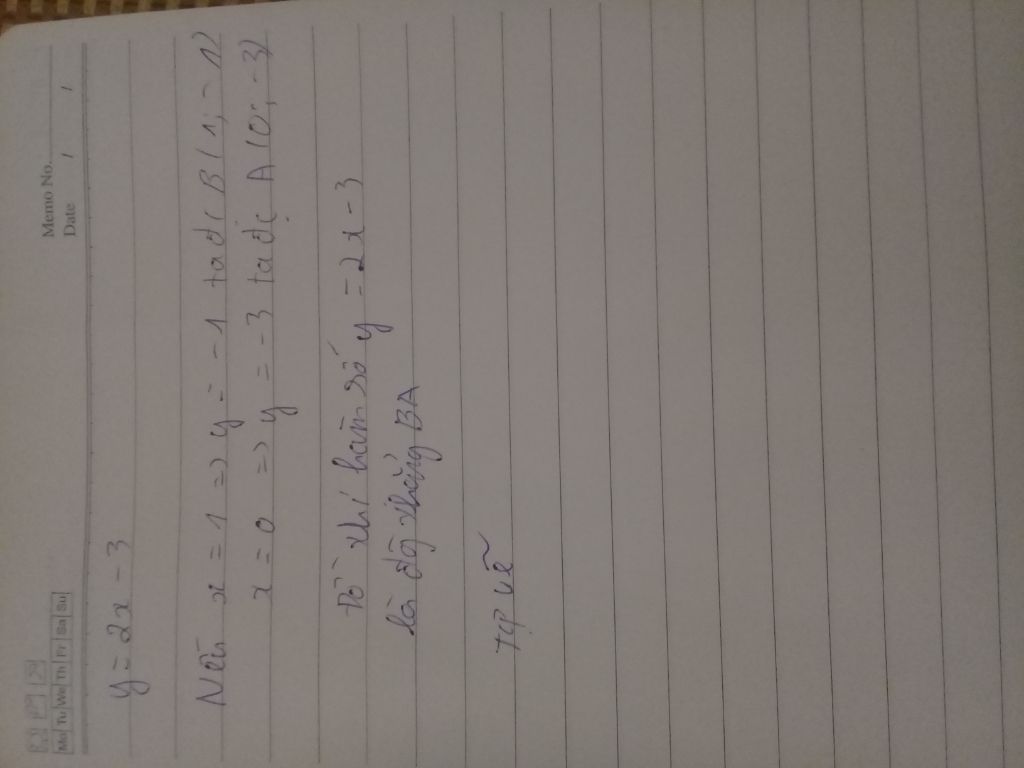 Memo No.
Mo Tu We Th Fr Sa Su
Date / /
y = 2x - 3
Nếu x = 1 => y = -1 ta đc B (1; -1)
x = 0 => y = -3 ta đc A (0; -3)
Đồ thị hàm số y = 2x - 3
là đg thẳng BA
Tự vẽ